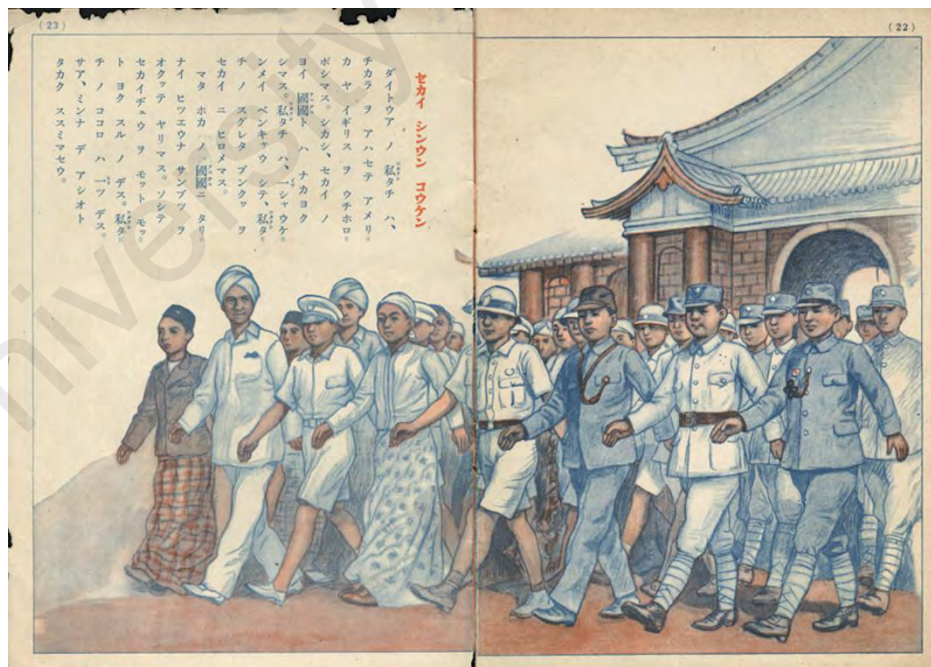 (23)
(22)
セカイ シンウン コウケン
ダイトウア ノ 私タチ ハ、
チカラ ヲ アハセテ アメリ
カ ヤ イギリス ヲ ウチホロ
ボシマス。シカシ、セカイ ノ
ヨイ 國國 ト ハ ナカヨク
シマス。私タチ ハ、一シャウケ
ンメイ ベンキャウ シテ、私タ
チ ノ スグレタ ブンクヮ ヲ
セカイ ニ ヒロメマス。
マタ ホカ ノ 國國 ニ タリ
ナイ ヒツエウナ サンブツ ヲ
オクッテ ヤリマス。ソシテ
セカイヂュウ ヲ モット モッ
ト ヨク スル ノ デス。私タ
チ ノ ココロ ハ 一ツ デス。
サア、ミンナ デ アシオト
タカク ススミマセウ。
University